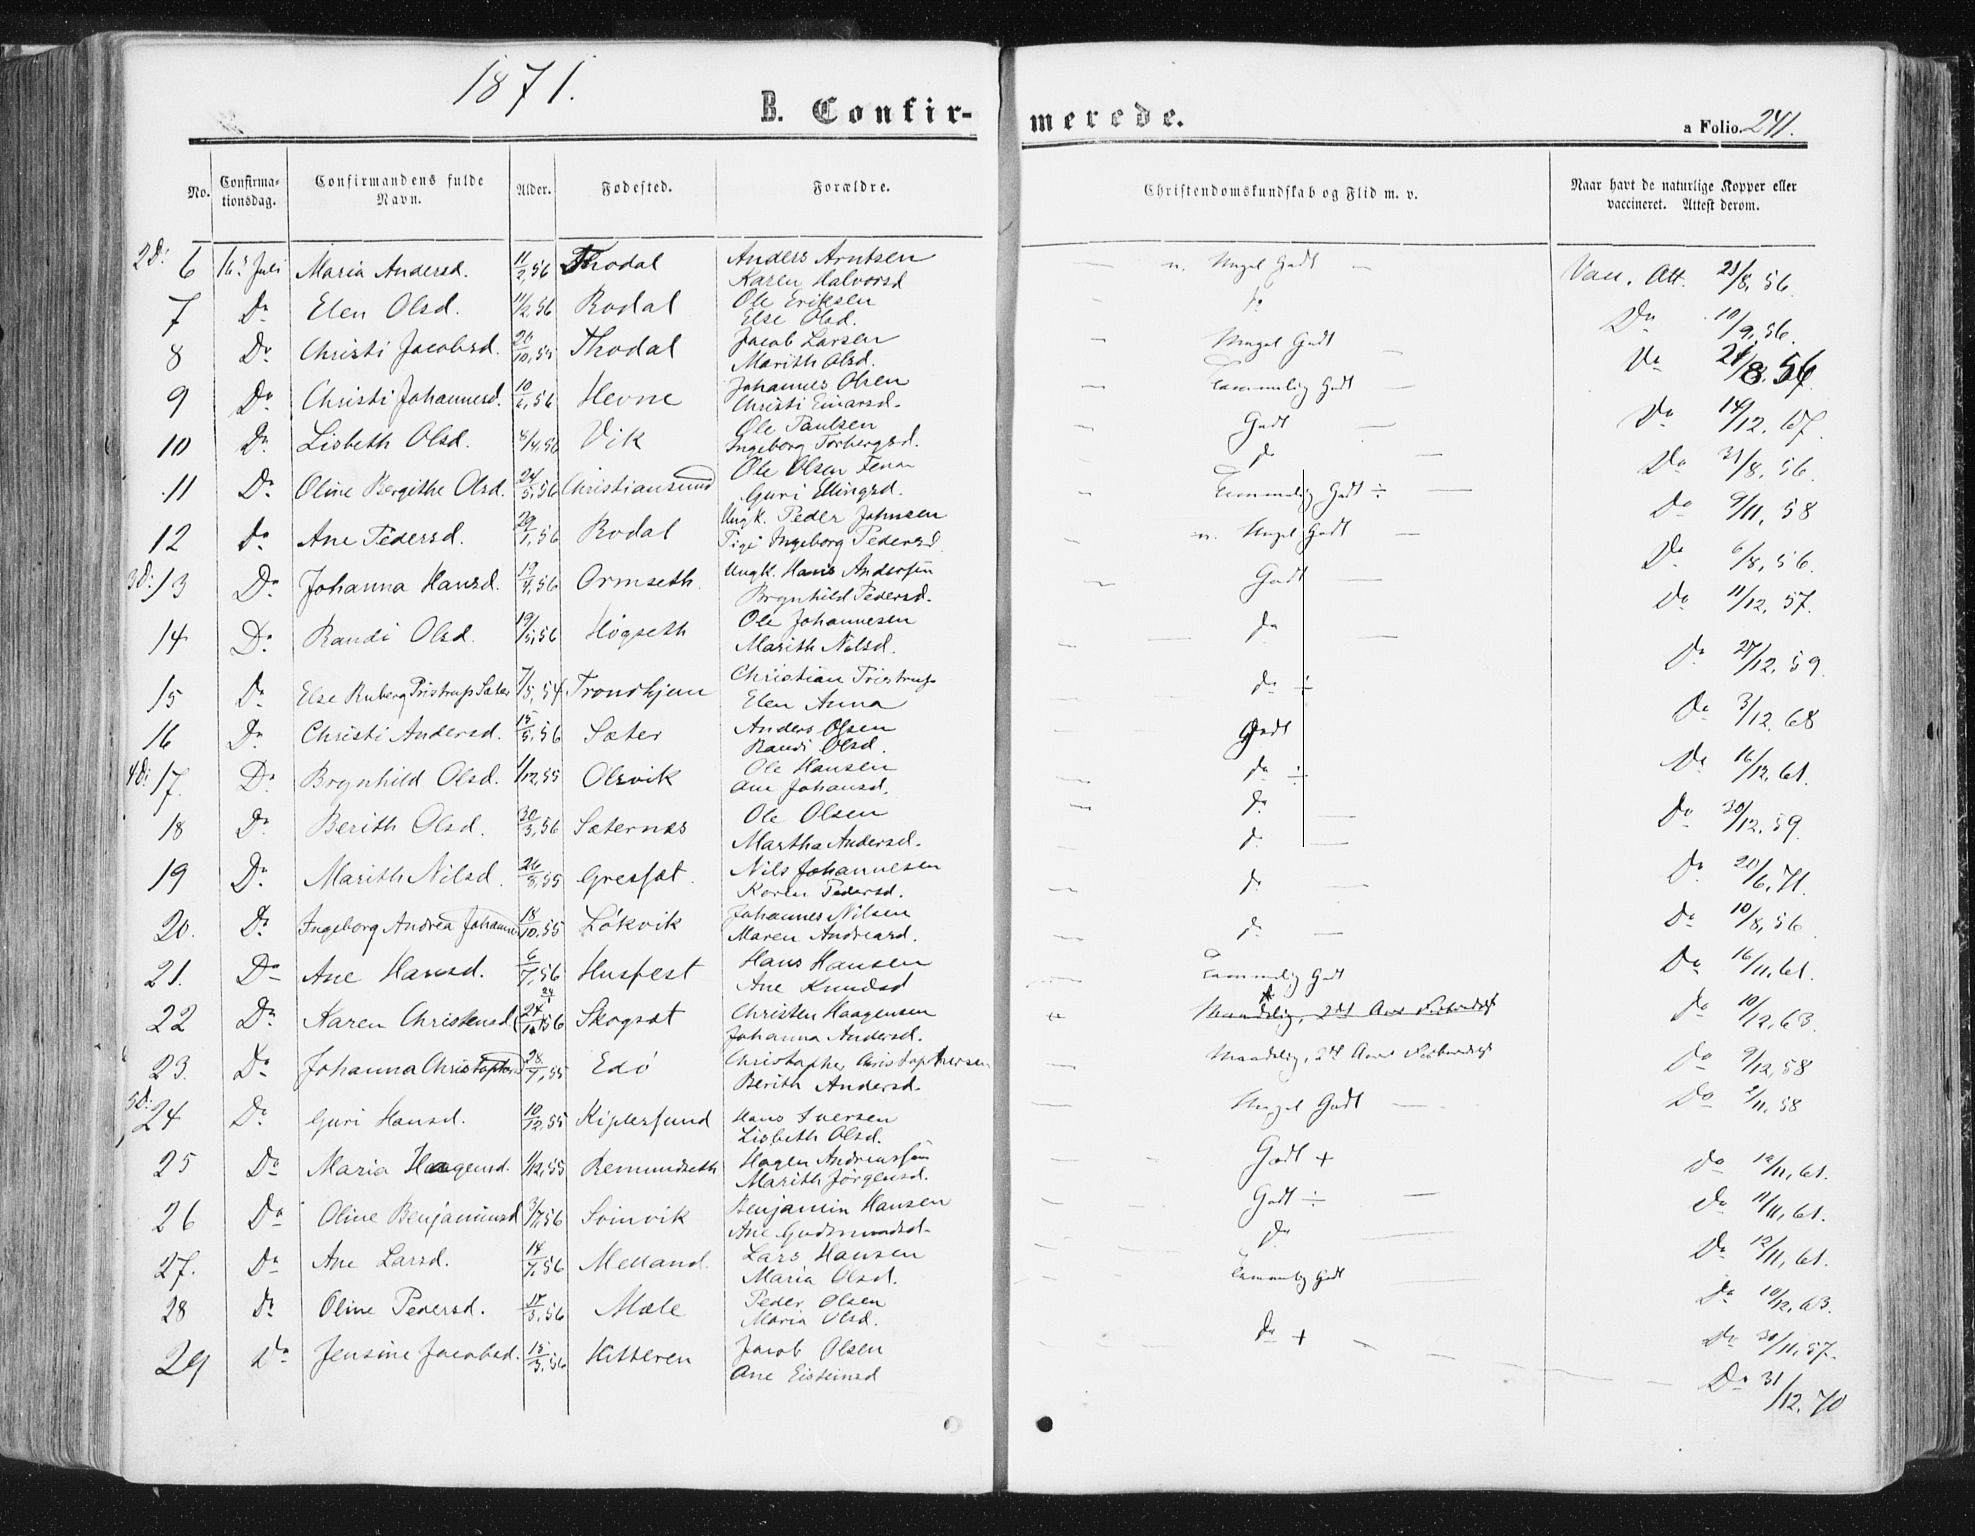 1871.
B. Confir-
merede.
a Folio. 241.
No. Confirma-tionsdag. Confirmandens fulde Navn. Alder. Fødested. Forældre. Christendomskundskab og Flid m. v. Naar havt de naturlige Kopper eller vaccineret. Attest derom.
2D: 6 16de Juli Maria Andersd. 11/2,56 Thodal Anders Arntsen n. Meget Godt Vacc. Att. 23/8, 56.
Karen Halvorsd
7 Do Elen Olsd. 11/2,56 Rodal Ole Eriksen do Do 10/9, 56.
Else Olsd.
8 Do Christi Jacobsd. 26/10,55 Thodal Jacob Larsen Meget Godt Do 24/8, 56
Marith Olsd.
9 Do Christi Johannesd. 10/6,56 Hevne Johannes Olsen Temmelig Godt Do 14/12, 57.
Christi Einarsd.
10 Do Lisbeth Olsd. 4/4,56 Vik Ole Paulsen Godt Do 31/8, 56.
Ingeborg Torbergsd.
11 Do Oline Bergithe Olsd. 24/5,56 Christiansund Ole Olsen do Do 9/11, 58
Guri Ellingsd. Temmelig Godt ÷
12 Do Ane Pedersd. 29/1,56 Rodal Ungk. Peder Johnsen n. Meget Godt Do 6/8, 56.
Pige Ingeborg Pedersd
3D: 13 Do Johanna Hansd. 19/4,56 Ormseth. Ungk. Hans Andersen Godt Do 11/12, 57.
Brynhild Pedersd.
14 Do Randi Olsd. 19/5,56 Høgseth Ole Johannesen do Do 27/12, 59.
Marith Nilsd.
15 Do Else Ruberg Tristrup Sæter 7/5,54 Trondhjem Christian Tristrup do ÷ Do 3/12, 68
Elen Anna
16 Do Christi Andersd. 15/5,56 Sæter Anders Olsen Godt Do 16/12, 61.
Randi Olsd.
4D: 17. Do Brynhild Olsd. 1/12,55 Olsvik Ole Hansen do ÷ Do 30/12, 59.
Ane Johansd.
18 Do Berith Olsd. 30/3,56 Sæternes Ole Olsen do
Martha Andersd. do
19 Do Marith Nilsd. 26/8,55 Gresfæt. Nils Johannesen do Do 20/6, 71.
Karen Pedersd.
20. Do Ingeborg Andrea Johannesd 18/10,55 Løkvik Johannes Nilsen do Do 10/8, 56
Maren Andreasd.
21. Do Ane Hansd. 6/7,56 Husfest Hans Hansen Temmelig Godt Do 16/11, 61.
Ane Knudsd
22 Do Karen Christensd. 24/1 56 Skogsæt Christen Haagensen Do 10/12, 63.
Johanna Andersd.
23. Do Johanna Christophersd 28/9,55 Edø Christopher Christophersen Do 9/12, 58
Berith Andersd.
5D: 24 Do Guri Hansd. 10/12,55 Kiplesund Hans Iversen Meget Godt Do 2/11, 58
Lisbeth Olsd.
25 Do Maria Haagensd. 1/12,55 Remundseth Hagen Andreassen Godt + Do 12/11, 61.
Marith Jørgensd.
26 Do Oline Benjaminsd 3/7,56 Svinvik Benjamin Hansen Godt ÷ Do 11/11, 61.
Ane Gudmundsd.
27. Do Ane Larsd. 14/7,56 Melland. Lars Hansen do Do 12/11, 61.
Maria Olsd.
28 Do Oline Pedersd. 17/3,56 Mæle Peder Olsen Temmelig Godt Do 10/12, 63.
Maria Olsd.
29 Do Jensine Jacobsd. 15/3,56 Hitteren Jacob Olsen do + Do 30/11, 57.
Ane Eisteinsd Do 31/12, 70